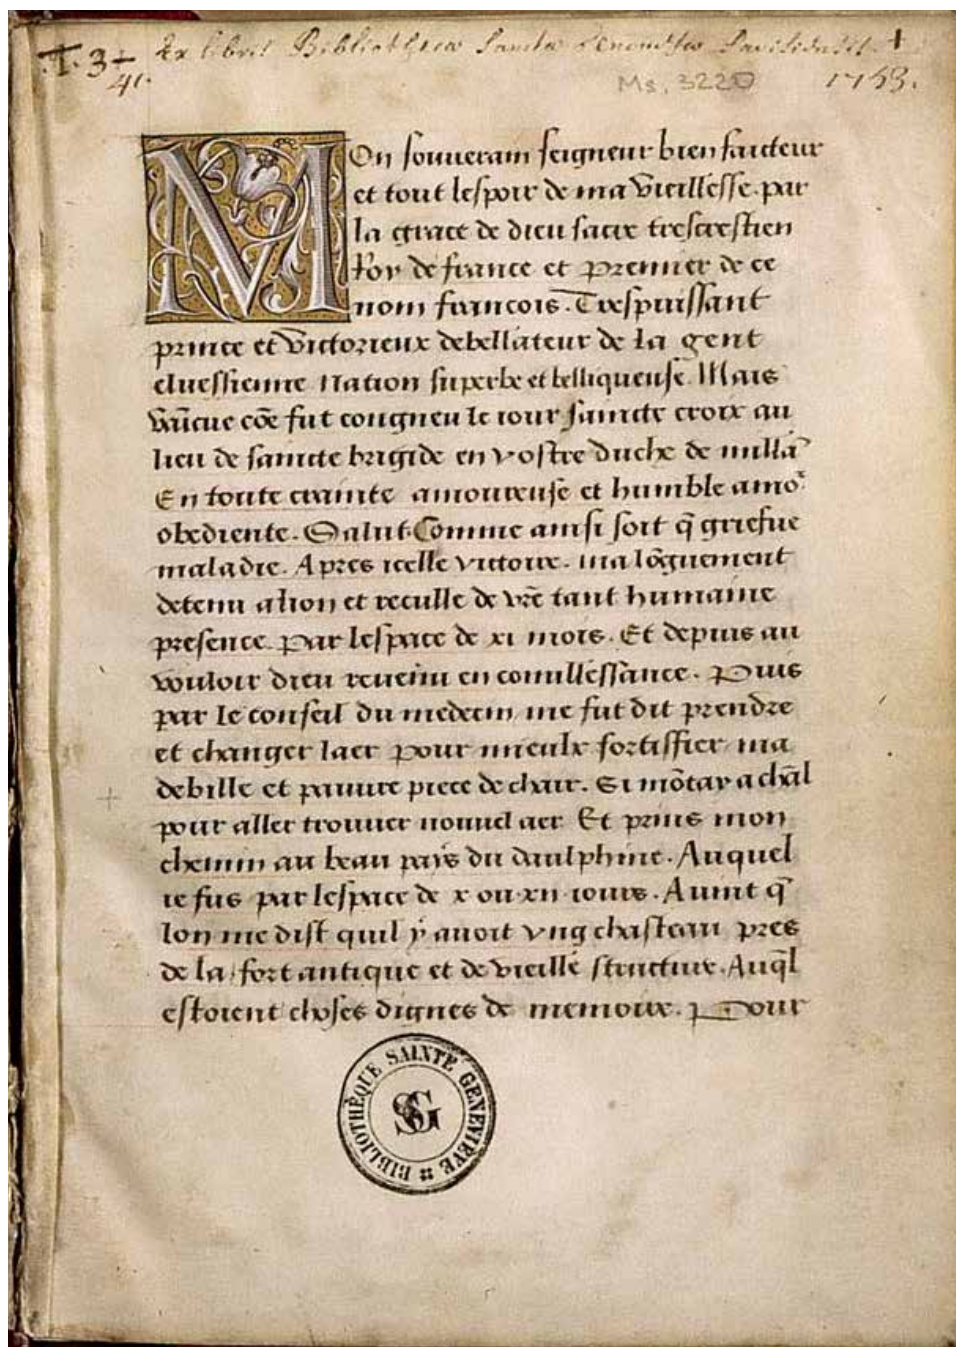 .T. 3 +
41.
Ex libris Bibliothecæ Sanctæ Genovefæ Parisiensis. +
Ms. 3220
1753.
MOn souuerain seigneur bien faicteur
et tout lespoir de ma vieillesse. par
la grace de dieu sacre trescrestien
Roy de france et premier de ce
nom francois. Trespuissant
prince et victorieux debellateur de la gent
eluessienne nation superbe et belliqueuse. Mais
vaīcue cōe fut congneu le iour saincte croix au
lieu de saincte brigide en vostre duche de millā
En toute crainte amoureuse et humble amo
obediente. Salut. Comme ainsi soit q̄ griefue
maladie. Apres icelle victoire. ma lōguement
detenu a lion et reculle de vr̄e tant humaine
presence. Par lespace de xi mois. Et depuis au
vouloir dieu reuenu en conuallessance. Puis
par le conseil du medecin me fut dit prendre
et changer laer pour mieulx fortiffier ma
debille et pauure piece de chair. Si mōtay a chāl
pour aller trouuer nouuel aer. Et prins mon
chemin au beau pays du daulphine. Auquel
ie fus par lespace de x ou xii iours. Auint q̄
lon me dist quil ẏ auoit vng chasteau pres
de la fort antique et de vieille structure. Auq̄l
estoient choses dignes de memoire. Pour
BIBLIOTHÈQUE SAINTE GENEVIEVE
SG